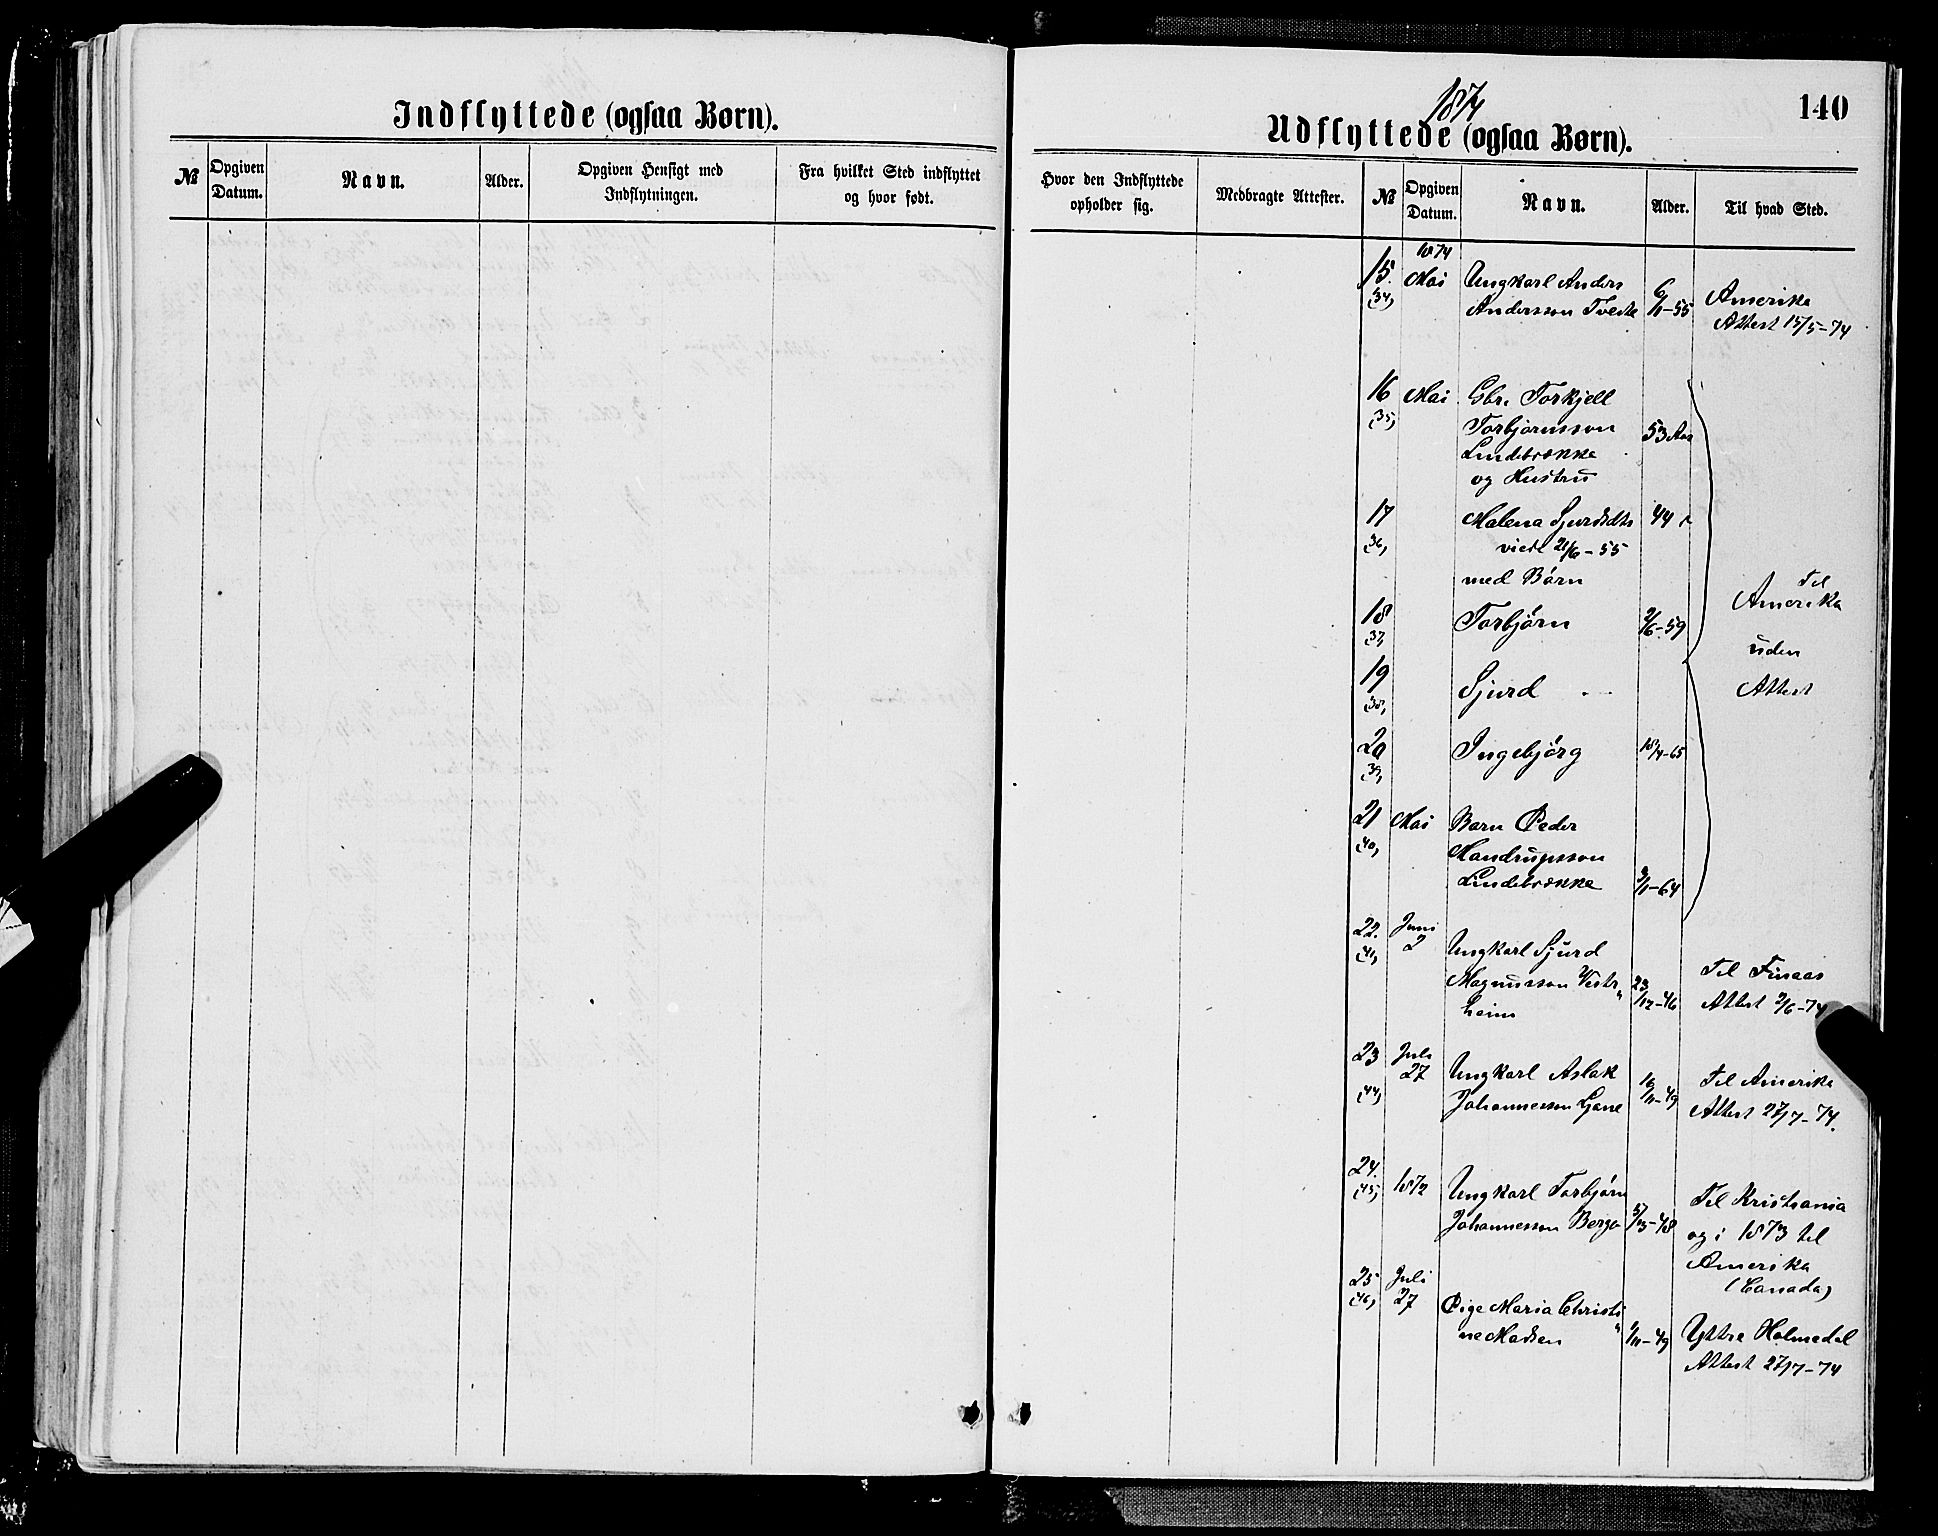 Indflyttede (ogsaa Børn).
№
Opgiven Datum.
Navn.
Alder.
Opgiven Hensigt med Indflytningen.
Fra hvilket Sted indflyttet og hvor født.
1874
140
Udflyttede (ogsaa Børn).
Hvor den Indflyttede opholder sig.
Medbragte Attester.
№
Opgiven Datum.
Navn.
Alder.
Til hvad Sted.
1874
15. Mai Ungkarl Anders
(34) Andersson Tveite 6/11-55 Amerika
Attest 15/5-74
16 Mai Gbr. Torkjell
(35) Torbjørnsson 53 Aar
Lindebrække
og Hustru
17 Malena Sjursdtr 44
(36) viede 21/6-55
med Børn
Til
Amerika
uden
Attest
18 Torbjörn 2/6-59
(37)
19 Sjurd
(38)
20 Ingebjörg 18/4-65
(39)
21 Mai Barn Peder
(40) Mandrupsson
Lindebrække 3/11-64
22. Juni
2 Ungkarl Sjurd
(41) Magnusson Vestr" 23/12-46 Til Finaas
heim Attest 2/6-74
23 Juli
27 Ungkarl Aslak 16/11-49 Til Amerika
(44) Johannesson Gane Attest 27/7-74.
24. 1872 Ungkarl Torbjørn Til Kristiania
(45) Johannesson Berge 5/3-48 og i 1873 til
Amerika
(Canada)
25 Juli
(46) 27 Pige Maria Christi"
ne Madsen 1/11-49 Yttre Holmedal
Attest 27/7-74